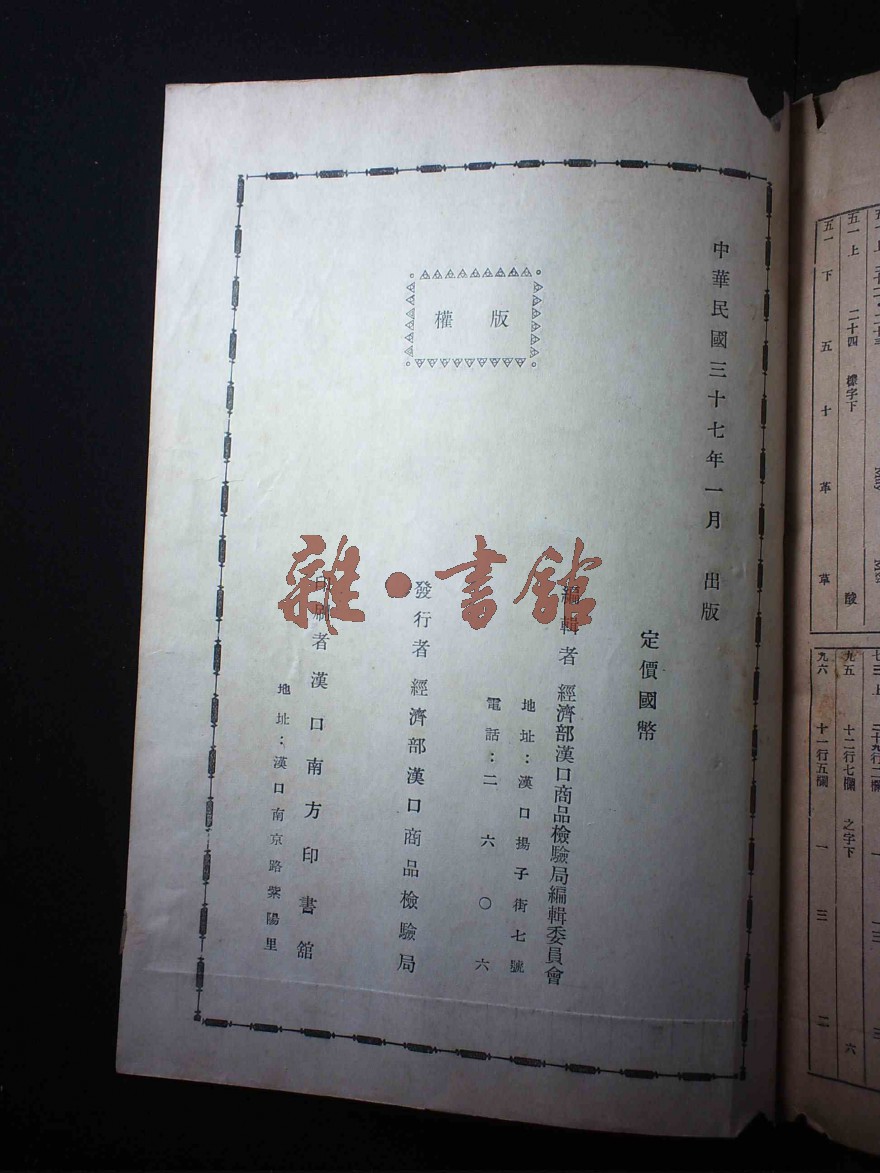 中華民國三十七年一月 出版
定價國幣
編輯者 經濟部漢口商品檢驗局編輯委員會
地址：漢口揚子街七號
電話：二六〇六
版權
發行者 經濟部漢口商品檢驗局
印刷者 漢口南方印書舘
地址：漢口南京路紫陽里
雜·書館
五一上 二十四 標字下 酸
五一下 五十 革 草
九五 十二行七欄 之字下 六
九六 十一行五欄 一 三 二